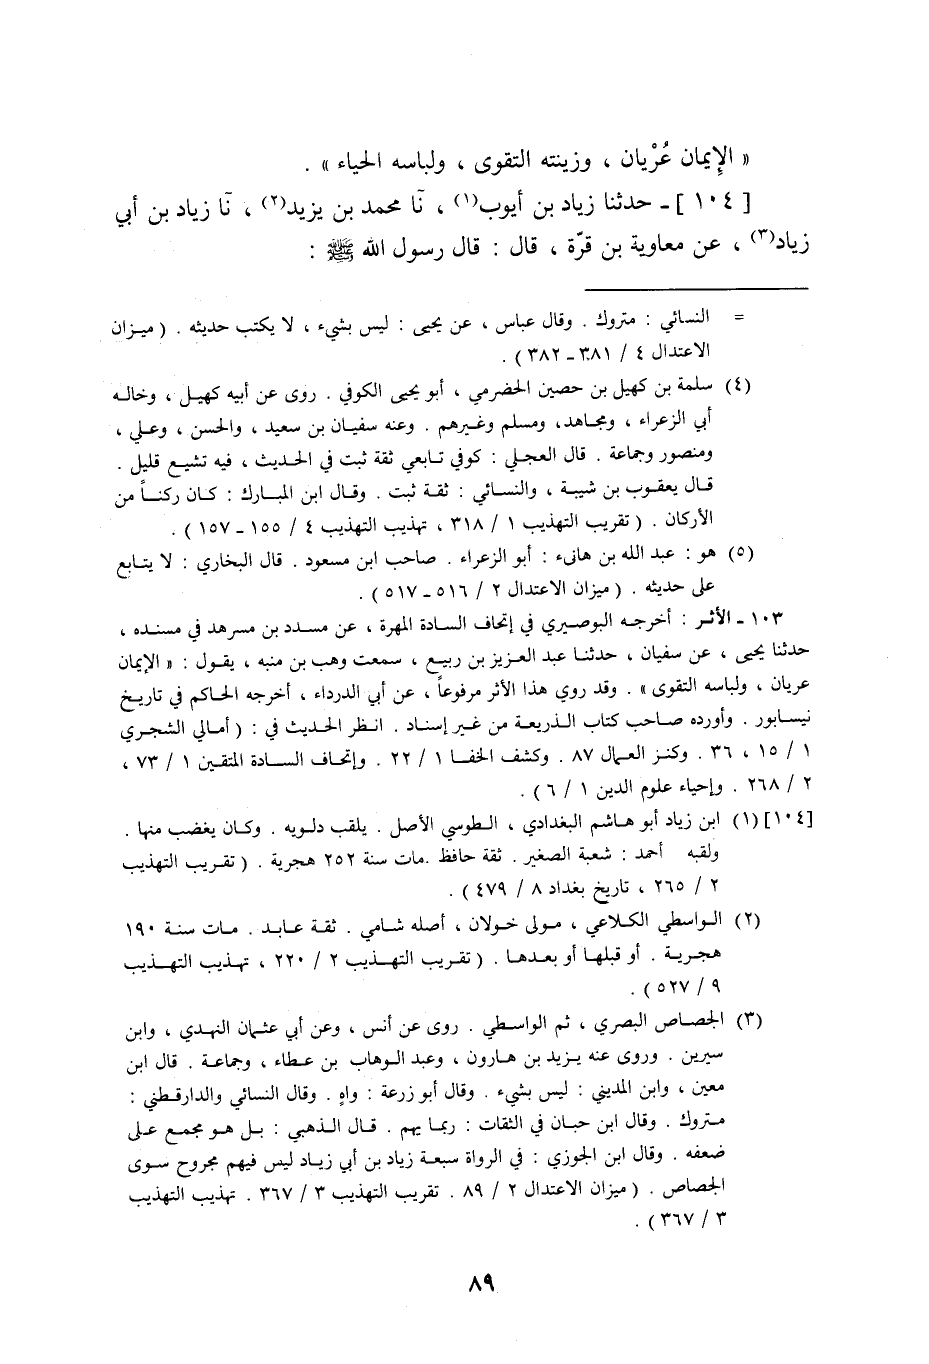 « الإِيمان عُرْيان ، وزينته التقوى ، ولباسه الحياء » .
[ ١٠٤ ] ـ حدثنا زياد بن أيوب(١) ، نَا محمد بن يزيد(٢) ، نَا زياد بن أبي
زياد(٣) ، عن معاوية بن قرّة ، قال : قال رسول الله ﷺ :
= النسائي : متروك . وقال عباس ، عن يحيى : ليس بشيء ، لا يكتب حديثه . ( ميزان
الاعتدال ٤ / ٣٨١ ـ ٣٨٢ ) .
(٤) سلمة بن كهيل بن حصين الحضرمي ، أبو يحيى الكوفي . روى عن أبيه كهيل ، وخاله
أبي الزعراء ، ومجاهد، ومسلم وغيرهم . وعنه سفيان بن سعيد ، والحسن ، وعلي ،
ومنصور وجماعة . قال العجلي : كوفي تابعي ثقة ثبت في الحديث ، فيه تشيع قليل .
قال يعقوب بن شيبة ، والنسائي : ثقة ثبت . وقال ابن المبارك : كان ركناً من
الأركان . ( تقريب التهذيب ١ / ٣١٨ ، تهذيب التهذيب ٤ / ١٥٥ ـ ١٥٧ ) .
(٥) هو : عبد الله بن هانىء : أبو الزعراء . صاحب ابن مسعود . قال البخاري : لا يتابع
على حديثه . ( ميزان الاعتدال ٢ / ٥١٦ ـ ٥١٧ ) .
١٠٣ ـ الأثر : أخرجه البوصيري في إتحاف السادة المهرة ، عن مسدد بن مسرهد في مسنده ،
حدثنا يحيى ، عن سفيان ، حدثنا عبد العزيز بن ربيع ، سمعت وهب بن منبه ، يقول : « الإيمان
عريان ، ولباسه التقوى » . وقد روي هذا الأثر مرفوعاً ، عن أبي الدرداء ، أخرجه الحاكم في تاريخ
نيسابور . وأورده صاحب كتاب الذريعة من غير إسناد . انظر الحديث في : ( أمالي الشجري
١ / ١٥ ، ٣٦ . وكنز العمال ٨٧ . وكشف الخفا ١ / ٢٢ . وإتحاف السادة المتقين ١ / ٧٣ ،
٢ / ٢٦٨ . وإحياء علوم الدين ١ / ٦ ) .
[١٠٤] (١) ابن زياد أبو هاشم البغدادي ، الطوسي الأصل . يلقب دلويه . وكان يغضب منها .
ولقبه أحمد : شعبة الصغير . ثقة حافظ .مات سنة ٢٥٢ هجرية . ( تقريب التهذيب
٢ / ٢٦٥ ، تاريخ بغداد ٨ / ٤٧٩ ) .
(٢) الواسطي الكلاعي ، مولى خولان ، أصله شامي . ثقة عابد . مات سنة ١٩٠
هجرية . أو قبلها أو بعدها . ( تقريب التهذيب ٢ / ٢٢٠ ، تهذيب التهذيب
٩ / ٥٢٧ ) .
(٣) الجصاص البصري ، ثم الواسطي . روى عن أنس ، وعن أبي عثمان النهدي ، وابن
سيرين . وروى عنه يزيد بن هارون ، وعبد الوهاب بن عطاء ، وجماعة . قال ابن
معين ، وابن المديني : ليس بشيء . وقال أبو زرعة : واهٍ . وقال النسائي والدارقطني :
متروك . وقال ابن حبان في الثقات : ربما يهم . قال الذهبي : بل هو مجمع على
ضعفه . وقال ابن الجوزي : في الرواة سبعة زياد بن أبي زياد ليس فيهم مجروح سوى
الجصاص . ( ميزان الاعتدال ٢ / ٨٩ . تقريب التهذيب ٣ / ٣٦٧ . تهذيب التهذيب
٣ / ٣٦٧ ) .
٨٩